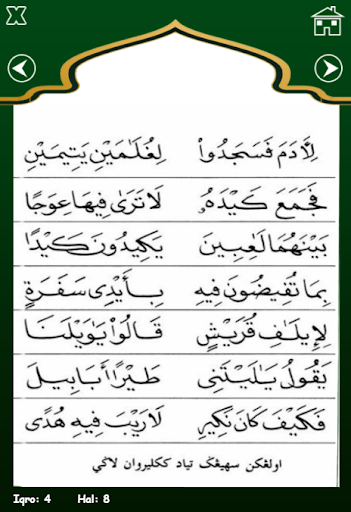 لِاٰدَمَ فَسَجَدُوْا لِغُلٰمَيْنِ يَتِيْمَيْنِ
فَجَمَعَ كَيْدَهٗ لَا تَرٰى فِيْهَا عِوَجًا
بَيْنَهُمَا لَاعِبِيْنَ يَكِيْدُوْنَ كَيْدًا
بِمَا تُفِيْضُوْنَ فِيْهِ بِأَيْدِيْ سَفَرَةٍ
لِإِيْلٰفِ قُرَيْشٍ قَالُوْا يٰوَيْلَنَا
يَقُوْلُ يٰلَيْتَنِيْ طَيْرًا أَبَابِيْلَ
فَكَيْفَ كَانَ نَكِيْرِ لَا رَيْبَ فِيْهِ هُدًى
اولڠكن سهيڠݢ تياد ككليروان لاݢي
Iqro: 4 Hal: 8